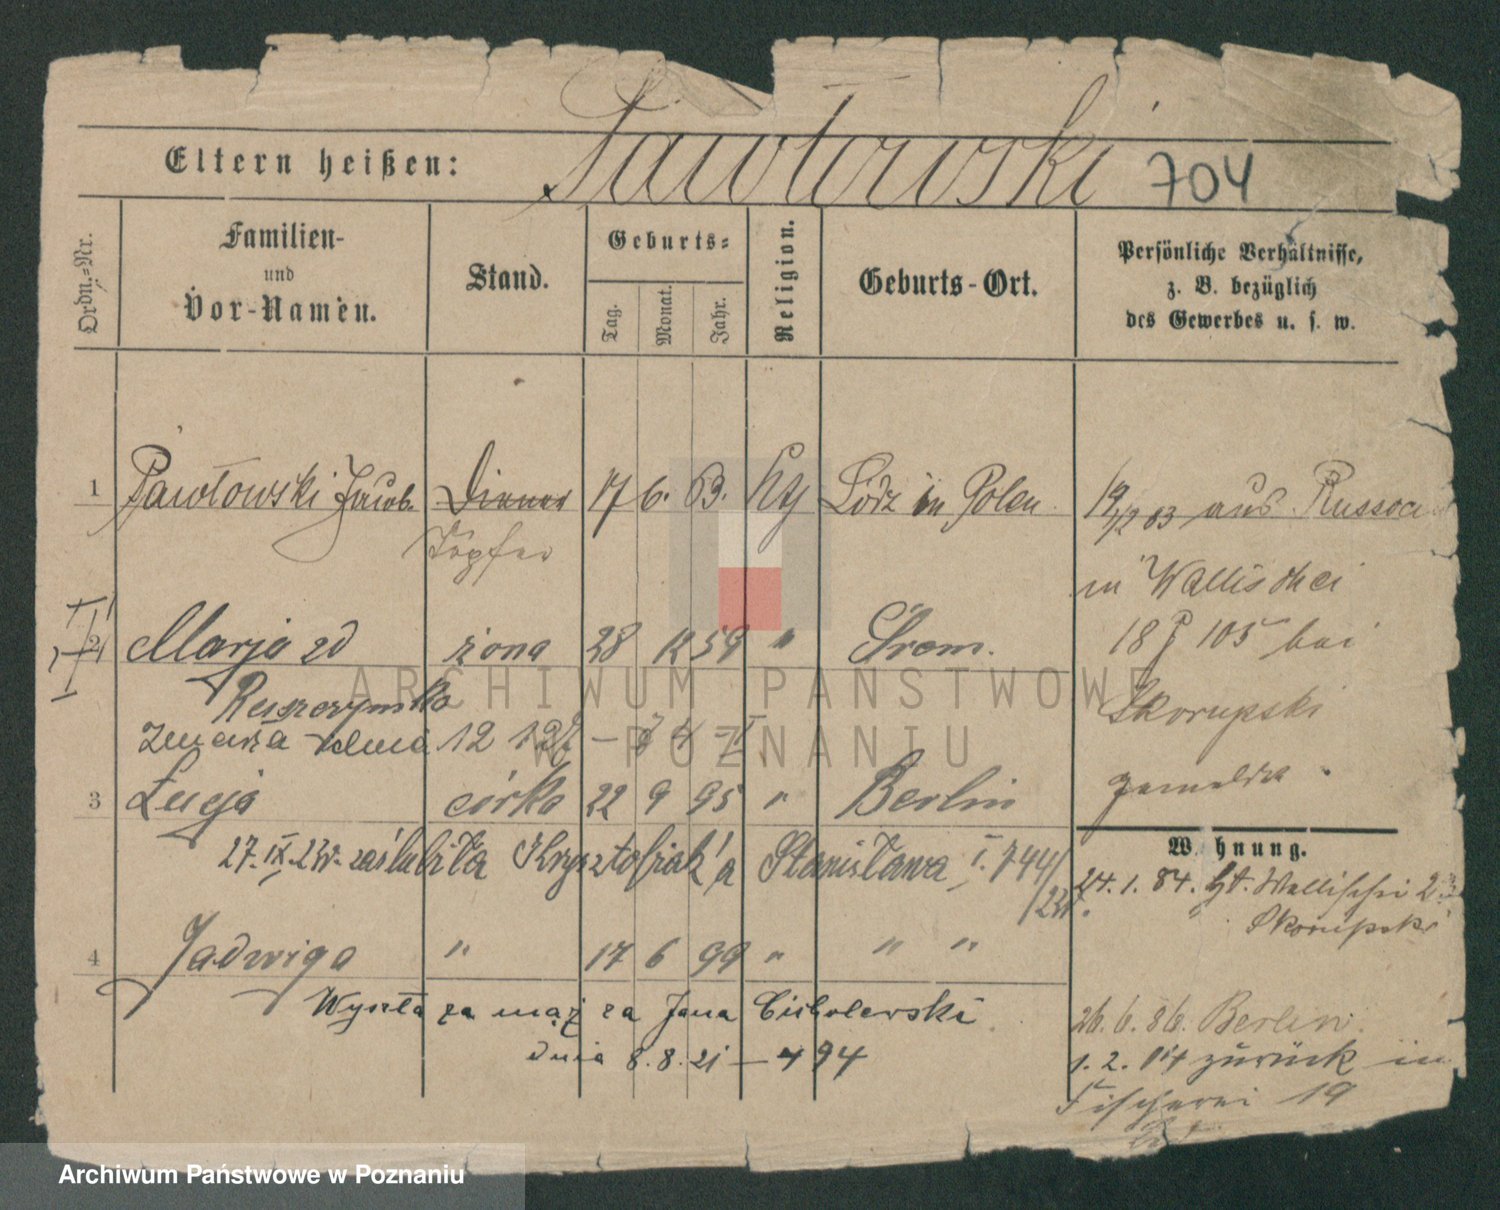 Pawłowski 704
Eltern heißen:
Ordn.=Nr.
Familien-
und
Vor-Namen.
Stand.
Geburts=
Tag.
Monat.
Jahr.
Religion.
Geburts-Ort.
Persönliche Verhältnisse,
z. B. bezüglich
des Gewerbes u. s. w.
1 Pawłowski Jacob. Diener 17 6. 63. Kath Lodz in Polen
Töpfer
2 Marja zd żona 28 12 59 " Śrem.
Ruszczyńska
zmarła dnia 12 1 27
3 Łucja córka 22 9 95 " Berlin
27. IX. 23r. zaślubiła Krysztofiak'a Stanisława I. 744/
/23r.
4 Jadwiga " 17 6 99 " " "
Wyszła za mąż za Jana Cicholewski
dnia 8.8.21 — 494
19/12 83 aus Russocin
in Wallischei
18 P 105 bei
Skorupski
Wohnung.
24. 1. 84. Wallischei 23
Skorupski
26. 6. 86. Berlin.
1. 2. 14 zurück in
Fischerei 19
ARCHIWUM PAŃSTWOWE
W POZNANIU
Archiwum Państwowe w Poznaniu